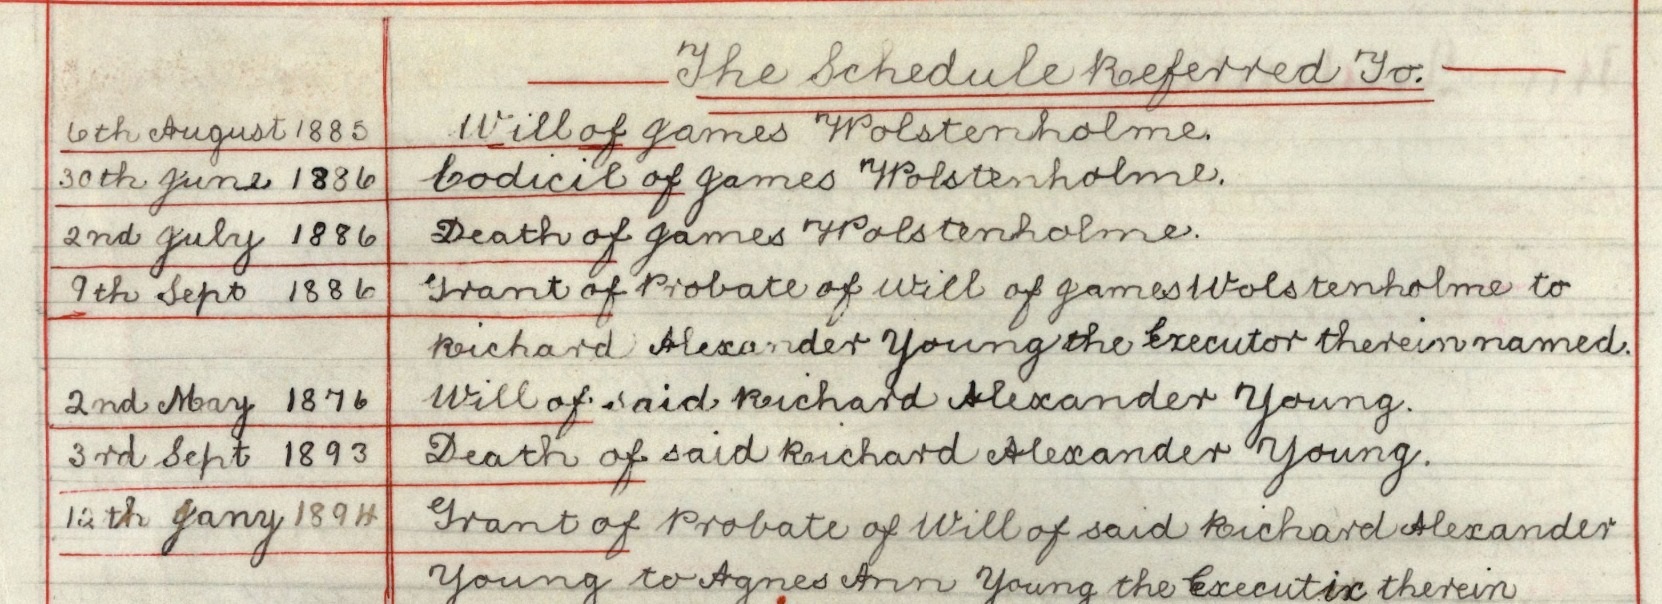 The Schedule Referred To.
6th August 1885 Will of James Wolstenholme.
30th June 1886 Codicil of James Wolstenholme.
2nd July 1886 Death of James Wolstenholme.
9th Sept 1886 Grant of Probate of Will of James Wolstenholme to
Richard Alexander Young the Executor therein named.
2nd May 1876 Will of said Richard Alexander Young.
3rd Sept 1893 Death of said Richard Alexander Young.
12th Jany 1894 Grant of Probate of Will of said Richard Alexander
Young to Agnes Ann Young the Executix therein